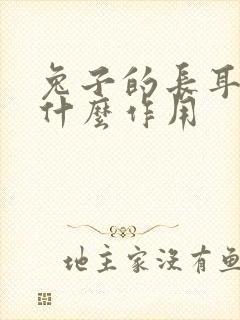 兔子的長耳
什麼作用
地主家沒有魚